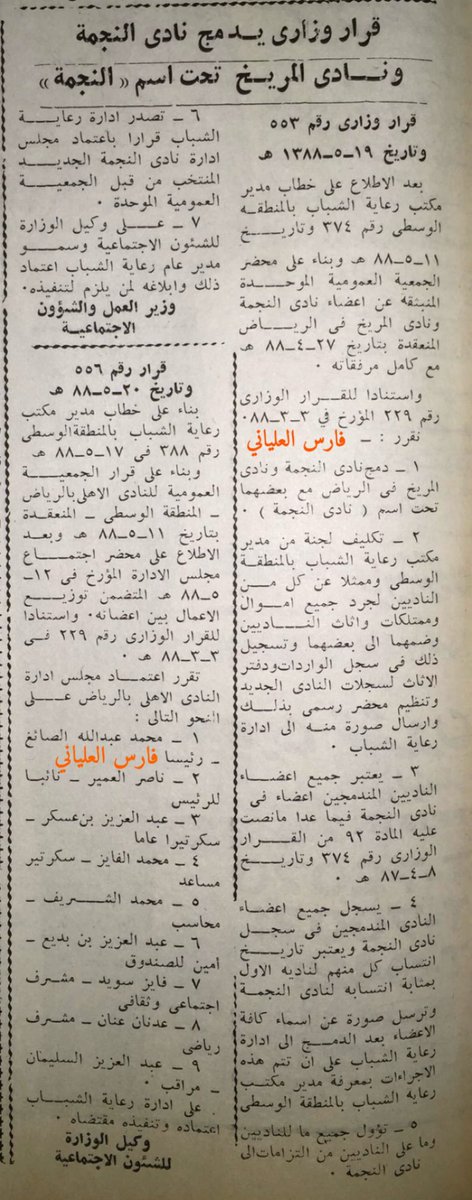 قرار وزارى يـدمـج نادى النجمة
ونـادى المريـخ تحت اسم « النجمة »
قرار وزارى رقم ٥٥٣
وتاريخ ١٩ــ٥ــ١٣٨٨ هـ
بعد الاطلاع على خطاب مدير
مكتب رعاية الشباب بالمنطقه
الوسطى رقم ٣٧٤ وتاريـخ
١١ــ٥ــ٨٨ هـ وبناء على محضر
الجمعية العمومية الموحـدة
المنبثقه عن اعضاء نادى النجمة
ونادى المريخ فى الريـاض
المنعقدة بتاريخ ٢٧ــ٤ــ٨٨ هـ
مع كامل مرفقاته ٠
واستنادا للقـرار الوزارى
رقم ٢٢٩ المؤرخ فى ٣ــ٣ــ٨٨٠
نقرر : ــ فارس العلياني
١ ــ دمج نادى النجمة ونادى
المريخ فى الرياض مع بعضهما
تحت اسم ( نادى النجمة ) ٠
٢ ــ تكليف لجنة من مدير
مكتب رعاية الشباب بالمنطقـة
الوسطى وممثلا عن كل مـن
الناديين لجرد جميع امـوال
وممتلكات واثاث النـاديين
وضمهما الى بعضهما وتسجيل
ذلك فى سجل الواردات ودفتر
الاثاث لسجلات النادى الجديد
وتنظيم محضر رسمى بذلـك
وارسال صورة منـه الى ادارة
رعاية الشباب ٠
٣ ــ يعتبر جميع اعضـاء
الناديين المندمجين اعضاء فى
نادى النجمة فيما عدا مانصت
عليه المادة ٩٢ من القـرار
الوزارى رقم ٣٧٤ وتاريـخ
٨ــ٤ــ٨٧ هـ ٠
٤ ــ يسجل جميع اعضـاء
النادى المندمجين فى سجـل
نادى النجمة ويعتبر تاريـخ
انتساب كل منهم لناديه الاول
بمثابة انتسابه لنادى النجمـة
وترسل صورة عن اسماء كافة
الاعضاء بعد الدمـج الى ادارة
رعاية الشباب على ان تتم هذه
الاجراءات بمعرفة مدير مكتـب
رعاية الشباب بالمنطقة الوسطى
٥ ــ تؤول جميع ما للناديين
وما على الناديين من التزامات الى
نادى النجمة ٠
٦ ــ تصدر ادارة رعايـة
الشباب قرارا باعتماد مجلس
ادارة نادى النجمة الجديـد
المنتخب من قبل الجمعيـة
العمومية الموحدة ٠
٧ ــ عـلى وكيل الوزارة
للشئون الاجتماعية وسمـو
مدير عام رعاية الشباب اعتماد
ذلك وابلاغه لمن يلزم لتنفيذه٠
وزير العمل والشؤون
الاجتماعيـة
قرار رقم ٥٥٦
وتاريخ ٢٠ــ٥ــ٨٨ هـ
بناء على خطاب مدير مكتب
رعاية الشباب بالمنطقة الوسطى
رقم ٣٨٨ فى ١٧ــ٥ــ٨٨ هـ
وبناء على قرار الجمعيـة
العمومية للنادى الاهلى بالرياض
ــ المنطقة الوسطى ــ المنعقدة
بتاريخ ١١ــ٥ــ٨٨ هـ وبعـد
الاطلاع على محضر اجتمـاع
مجلس الادارة المؤرخ فى ١٢ــ
٥ــ٨٨ هـ المتضمن توزيـع
الاعمال بين اعضائه٠ واستنادا
للقرار الوزارى رقم ٢٢٩ فـى
٣ــ٣ــ٨٨ هـ ٠
تقرر اعتمـاد مجلس ادارة
النادى الاهلى بالرياض عـلى
النحو التالى :
١ ــ محمد عبدالله الصائغ
ــ رئيسا فارس العلياني
٢ ــ ناصر العمير ــ نائبـا
للرئيس
٣ ــ عبد العزيز بن عسكر ــ
سكرتيرا عاما
٤ ــ محمد الفايز ــ سكرتير
مساعد
٥ ــ محمد الشـريف ــ
محاسب
٦ ــ عبد العزيز بن بديع ــ
امين للصندوق
٧ ــ فايز سويد ــ مشـرف
اجتماعى وثقافى
٨ ــ عدنان عنان ــ مشرف
رياضى
٩ ــ عبد العزيز السليمان
ــ مراقب ٠
على ادارة رعاية الشبـاب
اعتماده وتنفيذه مقتضاه ٠
وكيل الوزارة
للشئون الاجتماعية